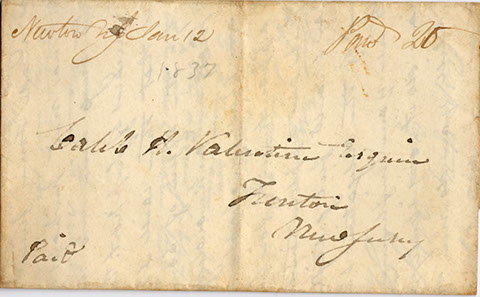 Newton NJ Jan 12
Paid 25
1837
Caleb H. Valentine Esquire
Trenton
New Jersey
Paid